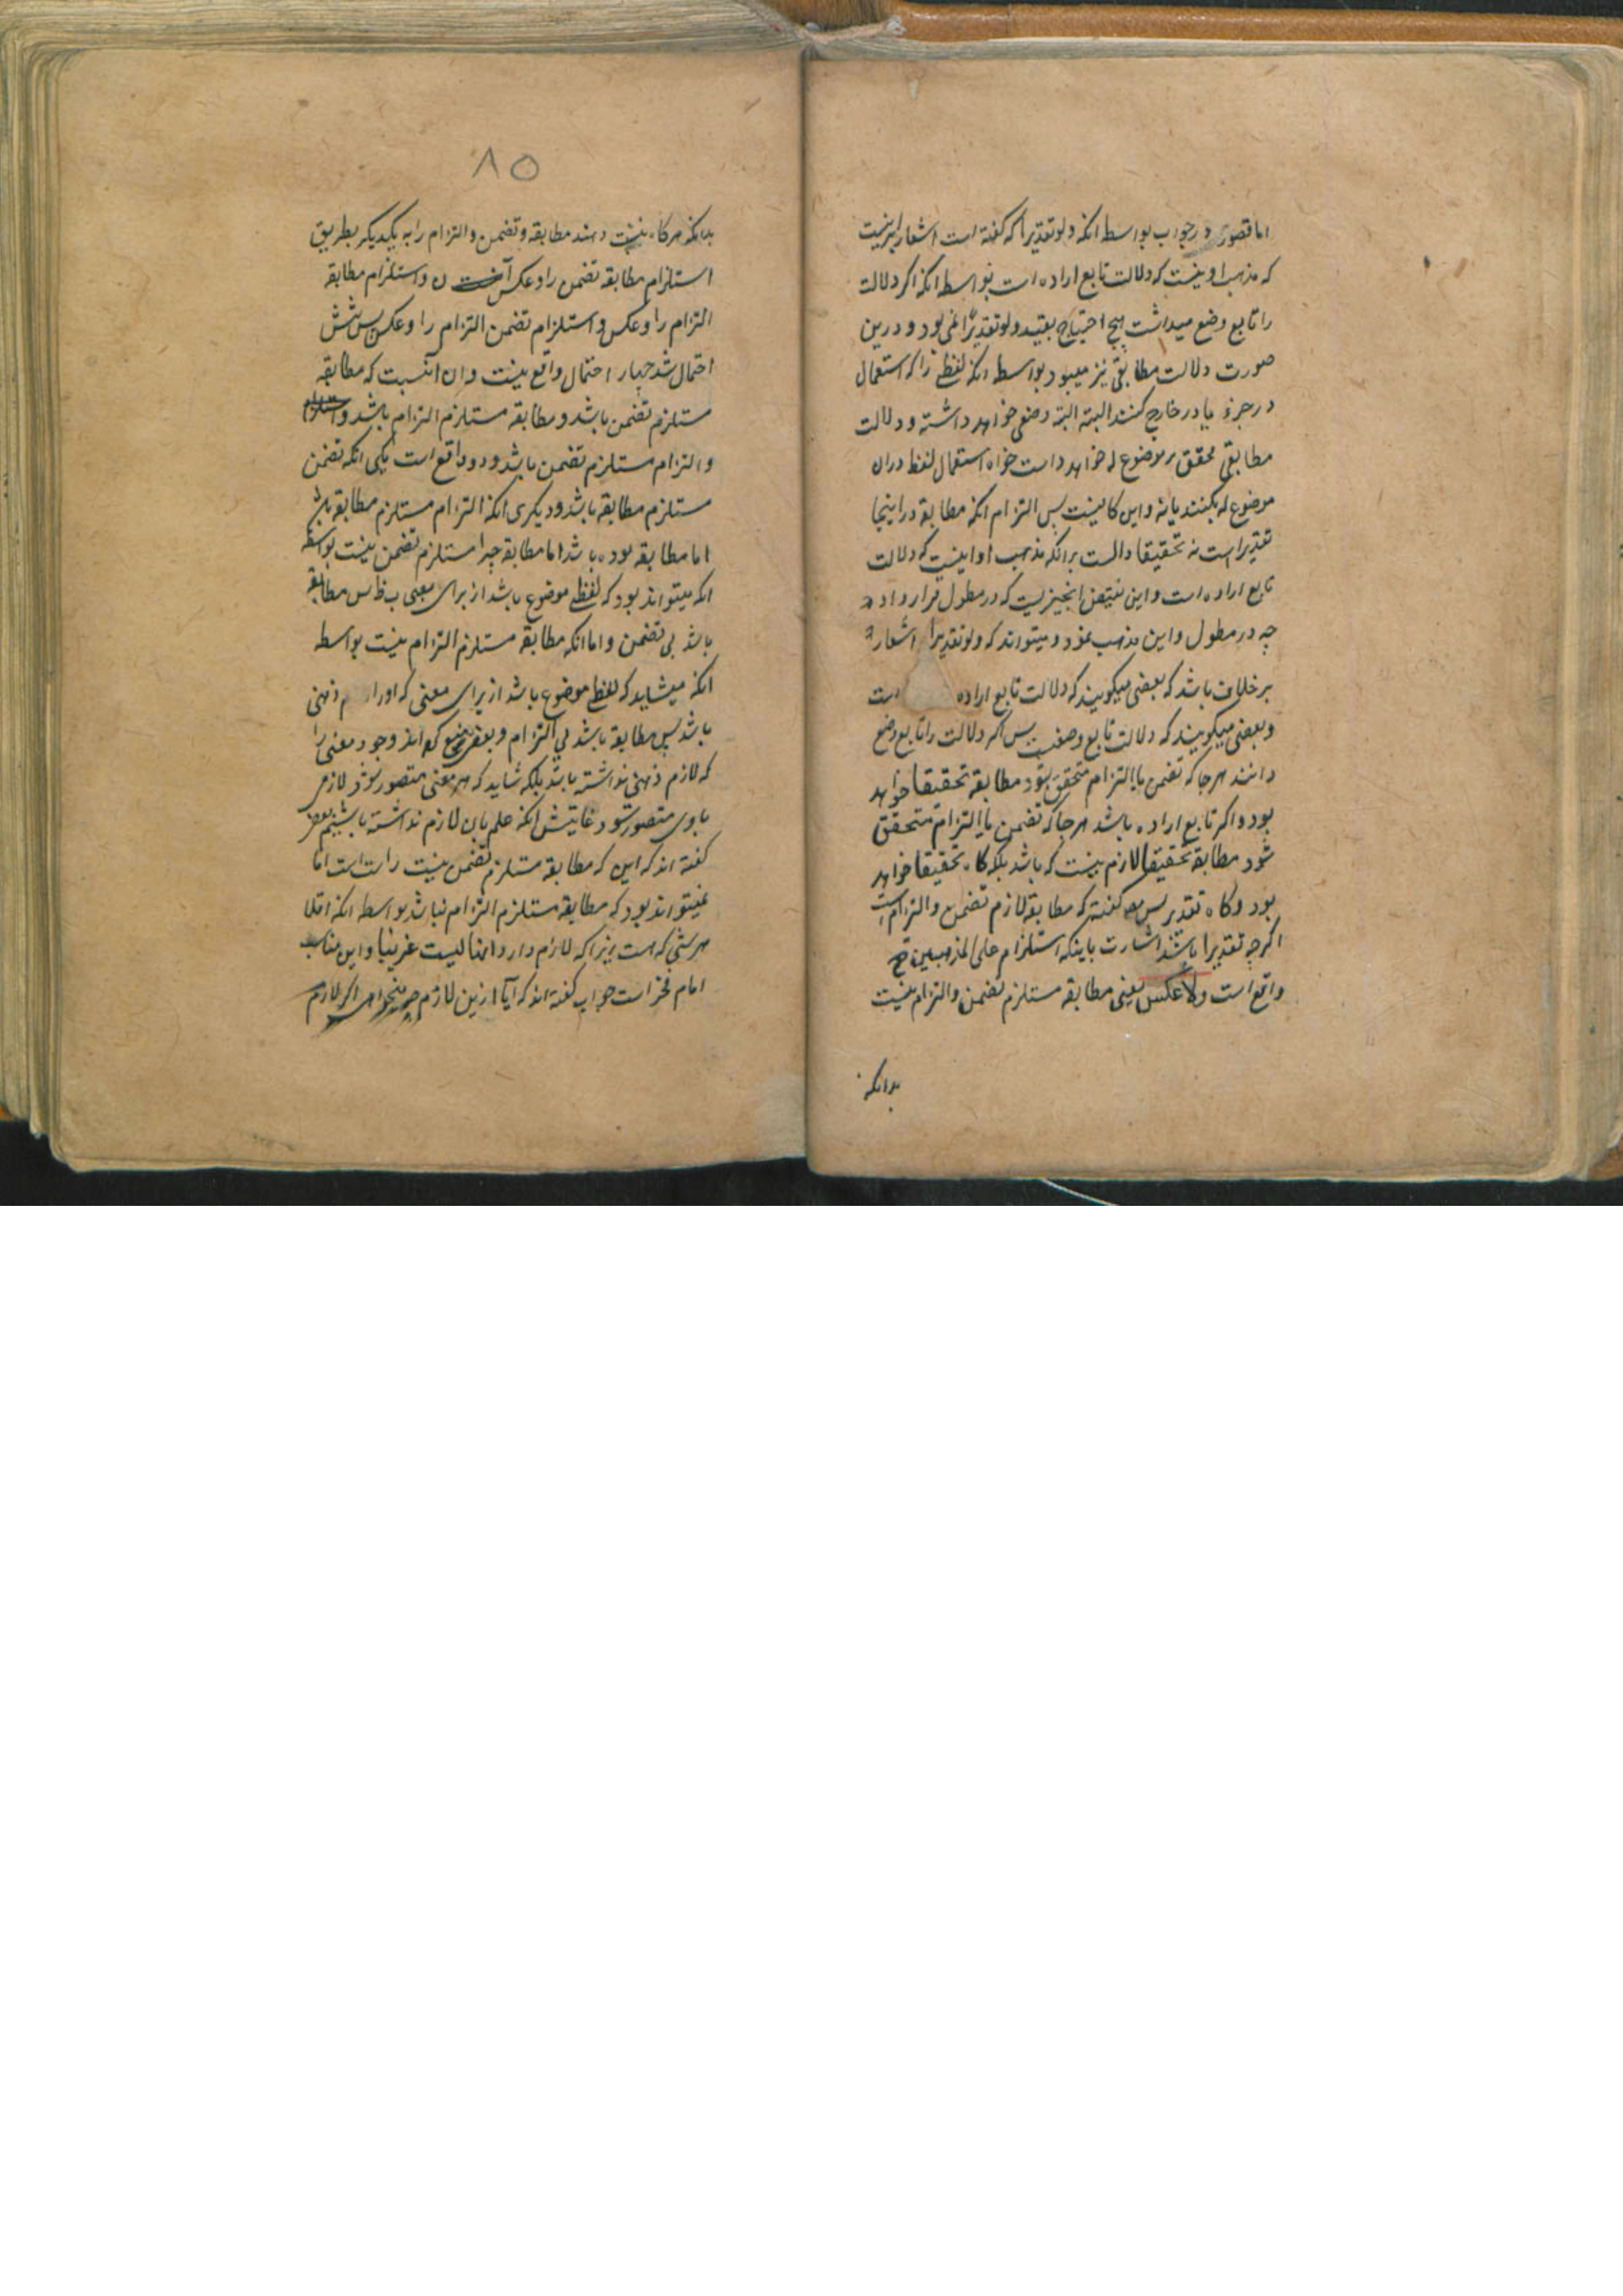 اما قصور در جواب بواسطه انکه ولو تقدیرا که گفته است اشعار
که مذهب او نیست که دلالت تابع اراده است بواسطه انکه اکر دلالت
را تابع وضع میداشت هیچ احتیاج بقید ولو تقدیرا نمی بود و درین
صورت دلالت مطابقی نیز میبود بواسطه انکه لفظی را که استعمال
در جزء یا در خارج کنند البته البته وضعی خواهد داشته و دلالت
مطابقی محقق بر موضوع له خواهد داست خواه استعمال لفظ دران
موضوع له بکنند یا نه و این کا نیست بس التزام انکه مطابقه در اینجا
تقدیرا است نه تحقیقا دالست برانکه مذهب او اینست که دلالت
تابع اراده است و این نقیض انچیزیست که در مطول قرار داده
چه در مطول و این مذهب نمود و میتواند که ولو تقدیرا اشعار
بر خلاف باشد که بعضی میکویند که دلالت تابع اراده است
و بعضی میکویند که دلالت تابع وضعست بس اکر دلالت را تابع وضع
دانند هرجا که تضمن یا التزام متحقق بود مطابقه تحقیقا خواهد
بود و اکر تابع اراده باشد هرجا که تضمن یا التزام متحقق
شود مطابقه تحقیقا لازم نیست که باشد بلکه کاه تحقیقا خواهد
بود و کاه تقدیر بس گفتند که مطابقه لازم تضمن و التزام است
اکرچه تقدیرا باشد اشارت باینکه استلزام علی المذهبین
واقع است ولا عکس یعنی مطابقه مستلزم تضمن و التزام نیست
بدانکه
۸۵
بدانکه هرکاه نسبت دهند مطابقه و تضمن و التزام را به یکدیکر بطریق
استلزام مطابقه تضمن را و عکس آن و استلزام مطابقه
التزام را و عکس و استلزام تضمن التزام را و عکس بس شش
احتمال شد چهار احتمال واقع نیست و ان آنست که مطابقه
مستلزم تضمن باشد و مطابقه مستلزم التزام باشد و استلزام
و التزام مستلزم تضمن باشد و دو واقع است یکی انکه تضمن
مستلزم مطابقه باشد و دیکری انکه التزام مستلزم مطابقه
اما مطابقه بوده باشد اما مطابقه چرا مستلزم تضمن نیست بواسطه
انکه میتواند بود که لفظی موضوع باشد از برای معنی بس مطابقه
باشد بی تضمن و اما انکه مطابقه مستلزم التزام نیست بواسطه
انکه میشاید که لفظ موضوع باشد از برای معنی که اورا ذهنی
باشد بس مطابقه باشد بی التزام و بعضی منع کرده اند وجود معنی را
که لازم ذهنی نداشته باشد بلکه شاید که هر معنی متصور شود لازمی
باوی متصور شود غایتش انکه علم بان لازم نداشته باشیم بعضی
گفته اند که این که مطابقه مستلزم تضمن نیست راست است اما
نمیتواند بود که مطابقه مستلزم التزام نباشد بواسطه انکه اقلا
هر شئ که هست چیزا که لازم دارد انها لیست غریبا و این مناسب
امام فخر است جواب گفته اند که آیا ازین لازم چه میخواهی اکر لازم